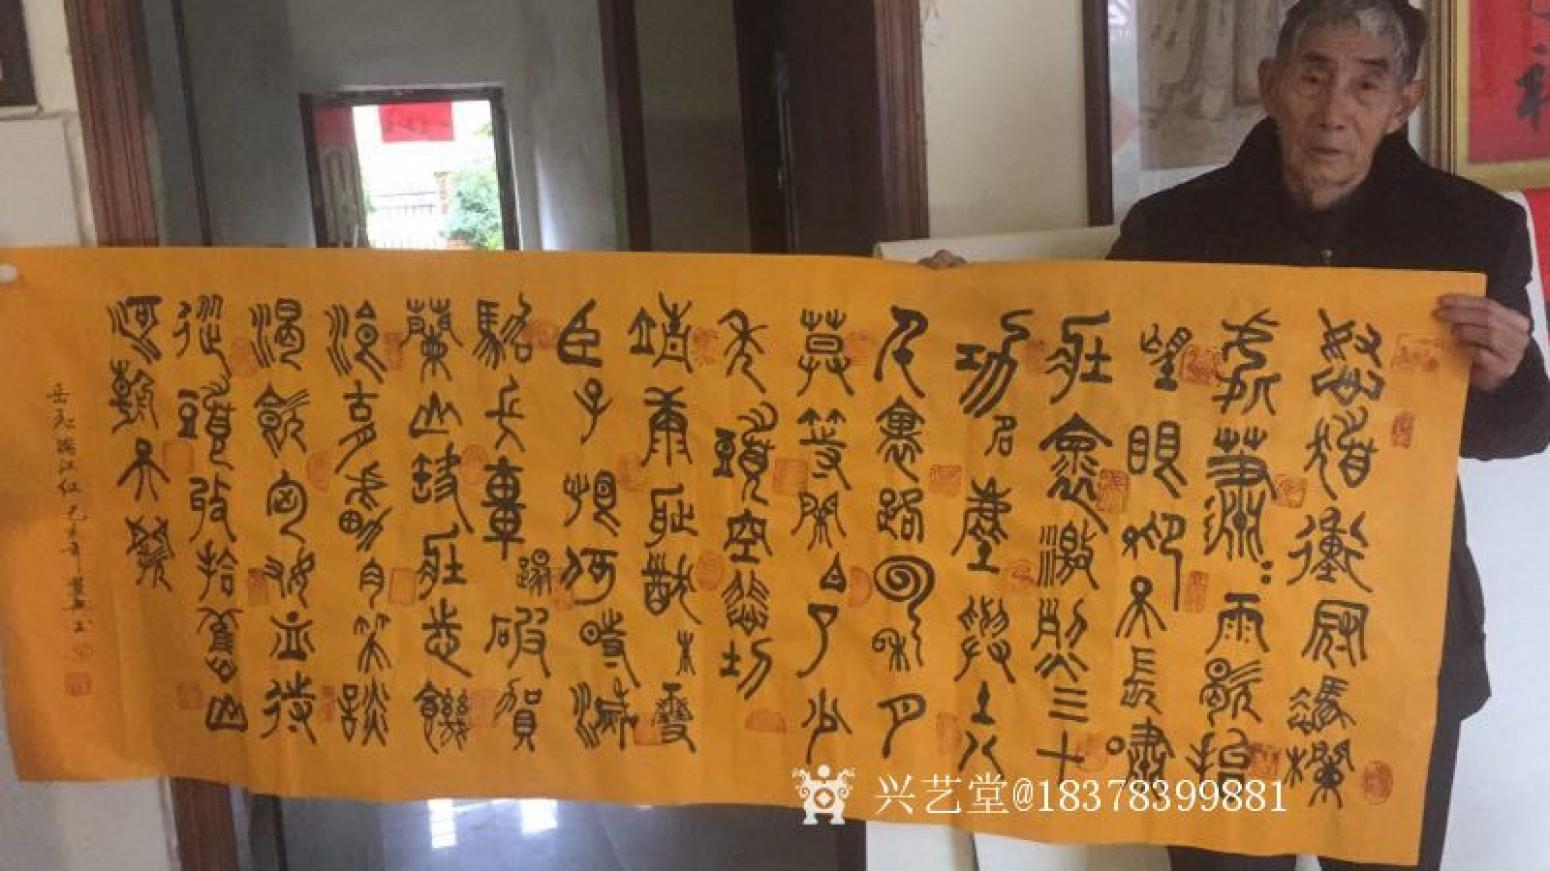 怒髮衝冠憑欄
處蕭：雨歇抬
望眼仰天長嘯
壯懷激烈三十
功名塵與土八
千里路雲和月
莫等閒白了少
年頭空悲切
靖康恥猶未雪
臣子恨何時滅
駕長車踏破賀
蘭山缺壯志饑
餐胡虜肉笑談
渴飲匈奴血待
從頭收拾舊山
河朝天闕
岳飛滿江红己亥年書
兴艺堂@18378399881